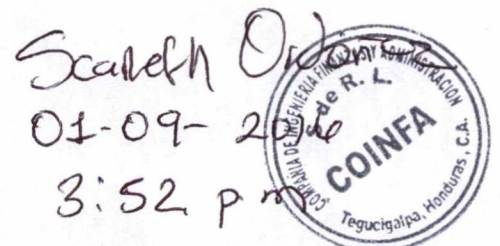 Scarleth Ordoñez
01-09-2016
3:52 pm
COMPAÑIA DE INGENIERIA FINANCIERA Y ADMINISTRACION
S de R. L.
COINFA
Tegucigalpa, Honduras, C.A.